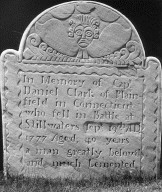 In Memory of Cap.
Daniel Clark of Plain
field in Connecticut
who fell in Battle at
Stillwater Sep
1777 Aged 40 years
a man greatly belovd
and much lamented